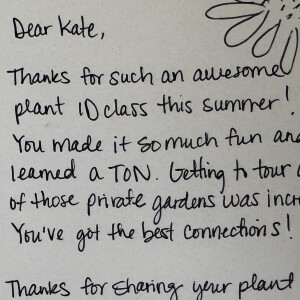 Dear Kate,
Thanks for such an awesome
plant ID class this summer!
You made it so much fun and
learned a TON. Getting to tour
of those private gardens was
You've got the best connections!
Thanks for sharing your plant